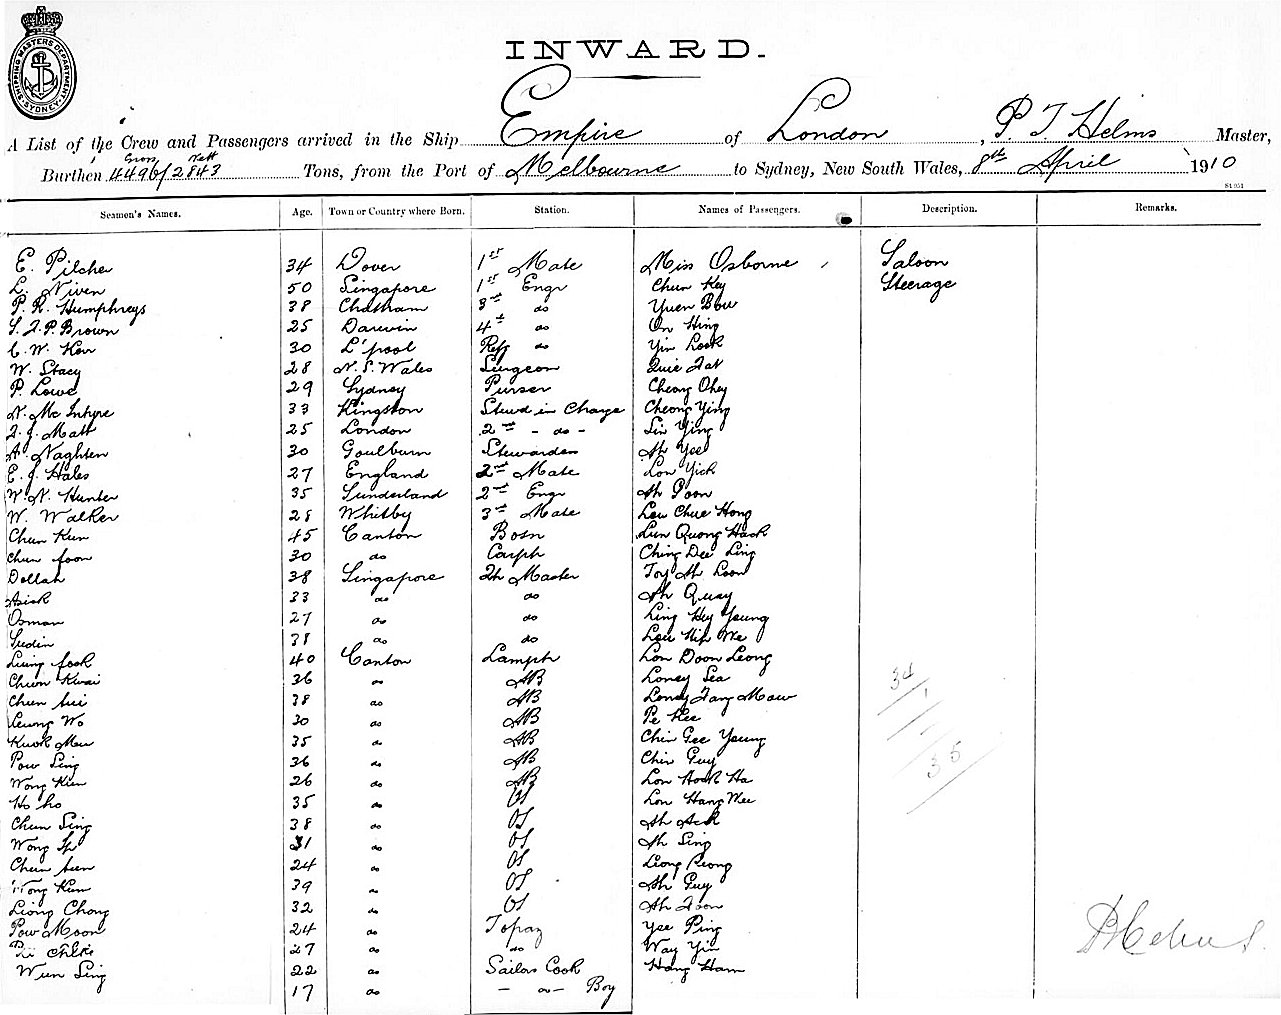 SHIPPING MASTERS DEPARTMENT
SYDNEY
INWARD.
A List of the Crew and Passengers arrived in the Ship Empire of London, P. T. Helms Master,
Burthen Gross Nett 4496/2843 Tons, from the Port of Melbourne to Sydney, New South Wales, 8th April 1910
St 951
Seamen's Names. Age. Town or Country where Born. Station. Names of Passengers. Description. Remarks.
E. Pilcher 34 Dover 1st Mate Miss Osborne Saloon
L. Niven 50 Singapore 1st Engr Chun Key Steerage
P. R. Humphreys 38 Chatham 3rd do Yuen Bow
S. J. P. Brown 25 Darwin 4th do On Hing
C. W. Kerr 30 L'pool Refg do Yin Look
W. Stacy 28 N. S. Wales Surgeon Quie Fat
P. Lowe 29 Sydney Purser Cheong Ohey
N. Mc Intyre 33 Kingston Stewd in Charge Cheong Ying
J. J. Matt 25 London 2nd - do - Sin Ying
A. Naghten 30 Goulburn Stewardess Ah Yee
E. J. Hales 27 England 2nd Mate Lon Yick
W. N. Hunter 35 Sunderland 2nd Engr Ah Poon
W. Walker 28 Whitby 3rd Mate Lew Chue Hong
Chun Kun 45 Canton Bosn Lun Quong Hack
Chun foon 30 do Carptr Ching Dee Ling
Dollah 38 Singapore Qr Master Toy Ah Loon
Asick 33 do do Ah Quay
Osman 27 do do Ling Hey Young
Sudin 38 do do Lou Hip We
Leung fook 40 Canton Lampm Lon Doon Leong
Chun Kwai 36 do AB Loney Sea
Chun sui 38 do AB Loney Fang Maw
Leung Wo 30 do AB Pe Kee
Kwok Mew 35 do AB Chin Gee Young
Pow Sing 36 do AB Chin Guy
Wong Kun 26 do AB Lon Hock Ha
Ho ho 35 do OS Lon Hang Wee
Chun Sing 38 do OS Ah Ack
Wong 31 do OS Ah Sing
Chun seen 24 do OS Leong Peong
Wong Kum 39 do OS Ah Guy
Liong Chong 32 do OS Ah Foon
Pow Moon 24 do Topaz Yee Ping
27 do do Way Yin
Wun Sing 22 do Sailors Cook Hang Ham
17 do - do - Boy
34
1
35
P Helms